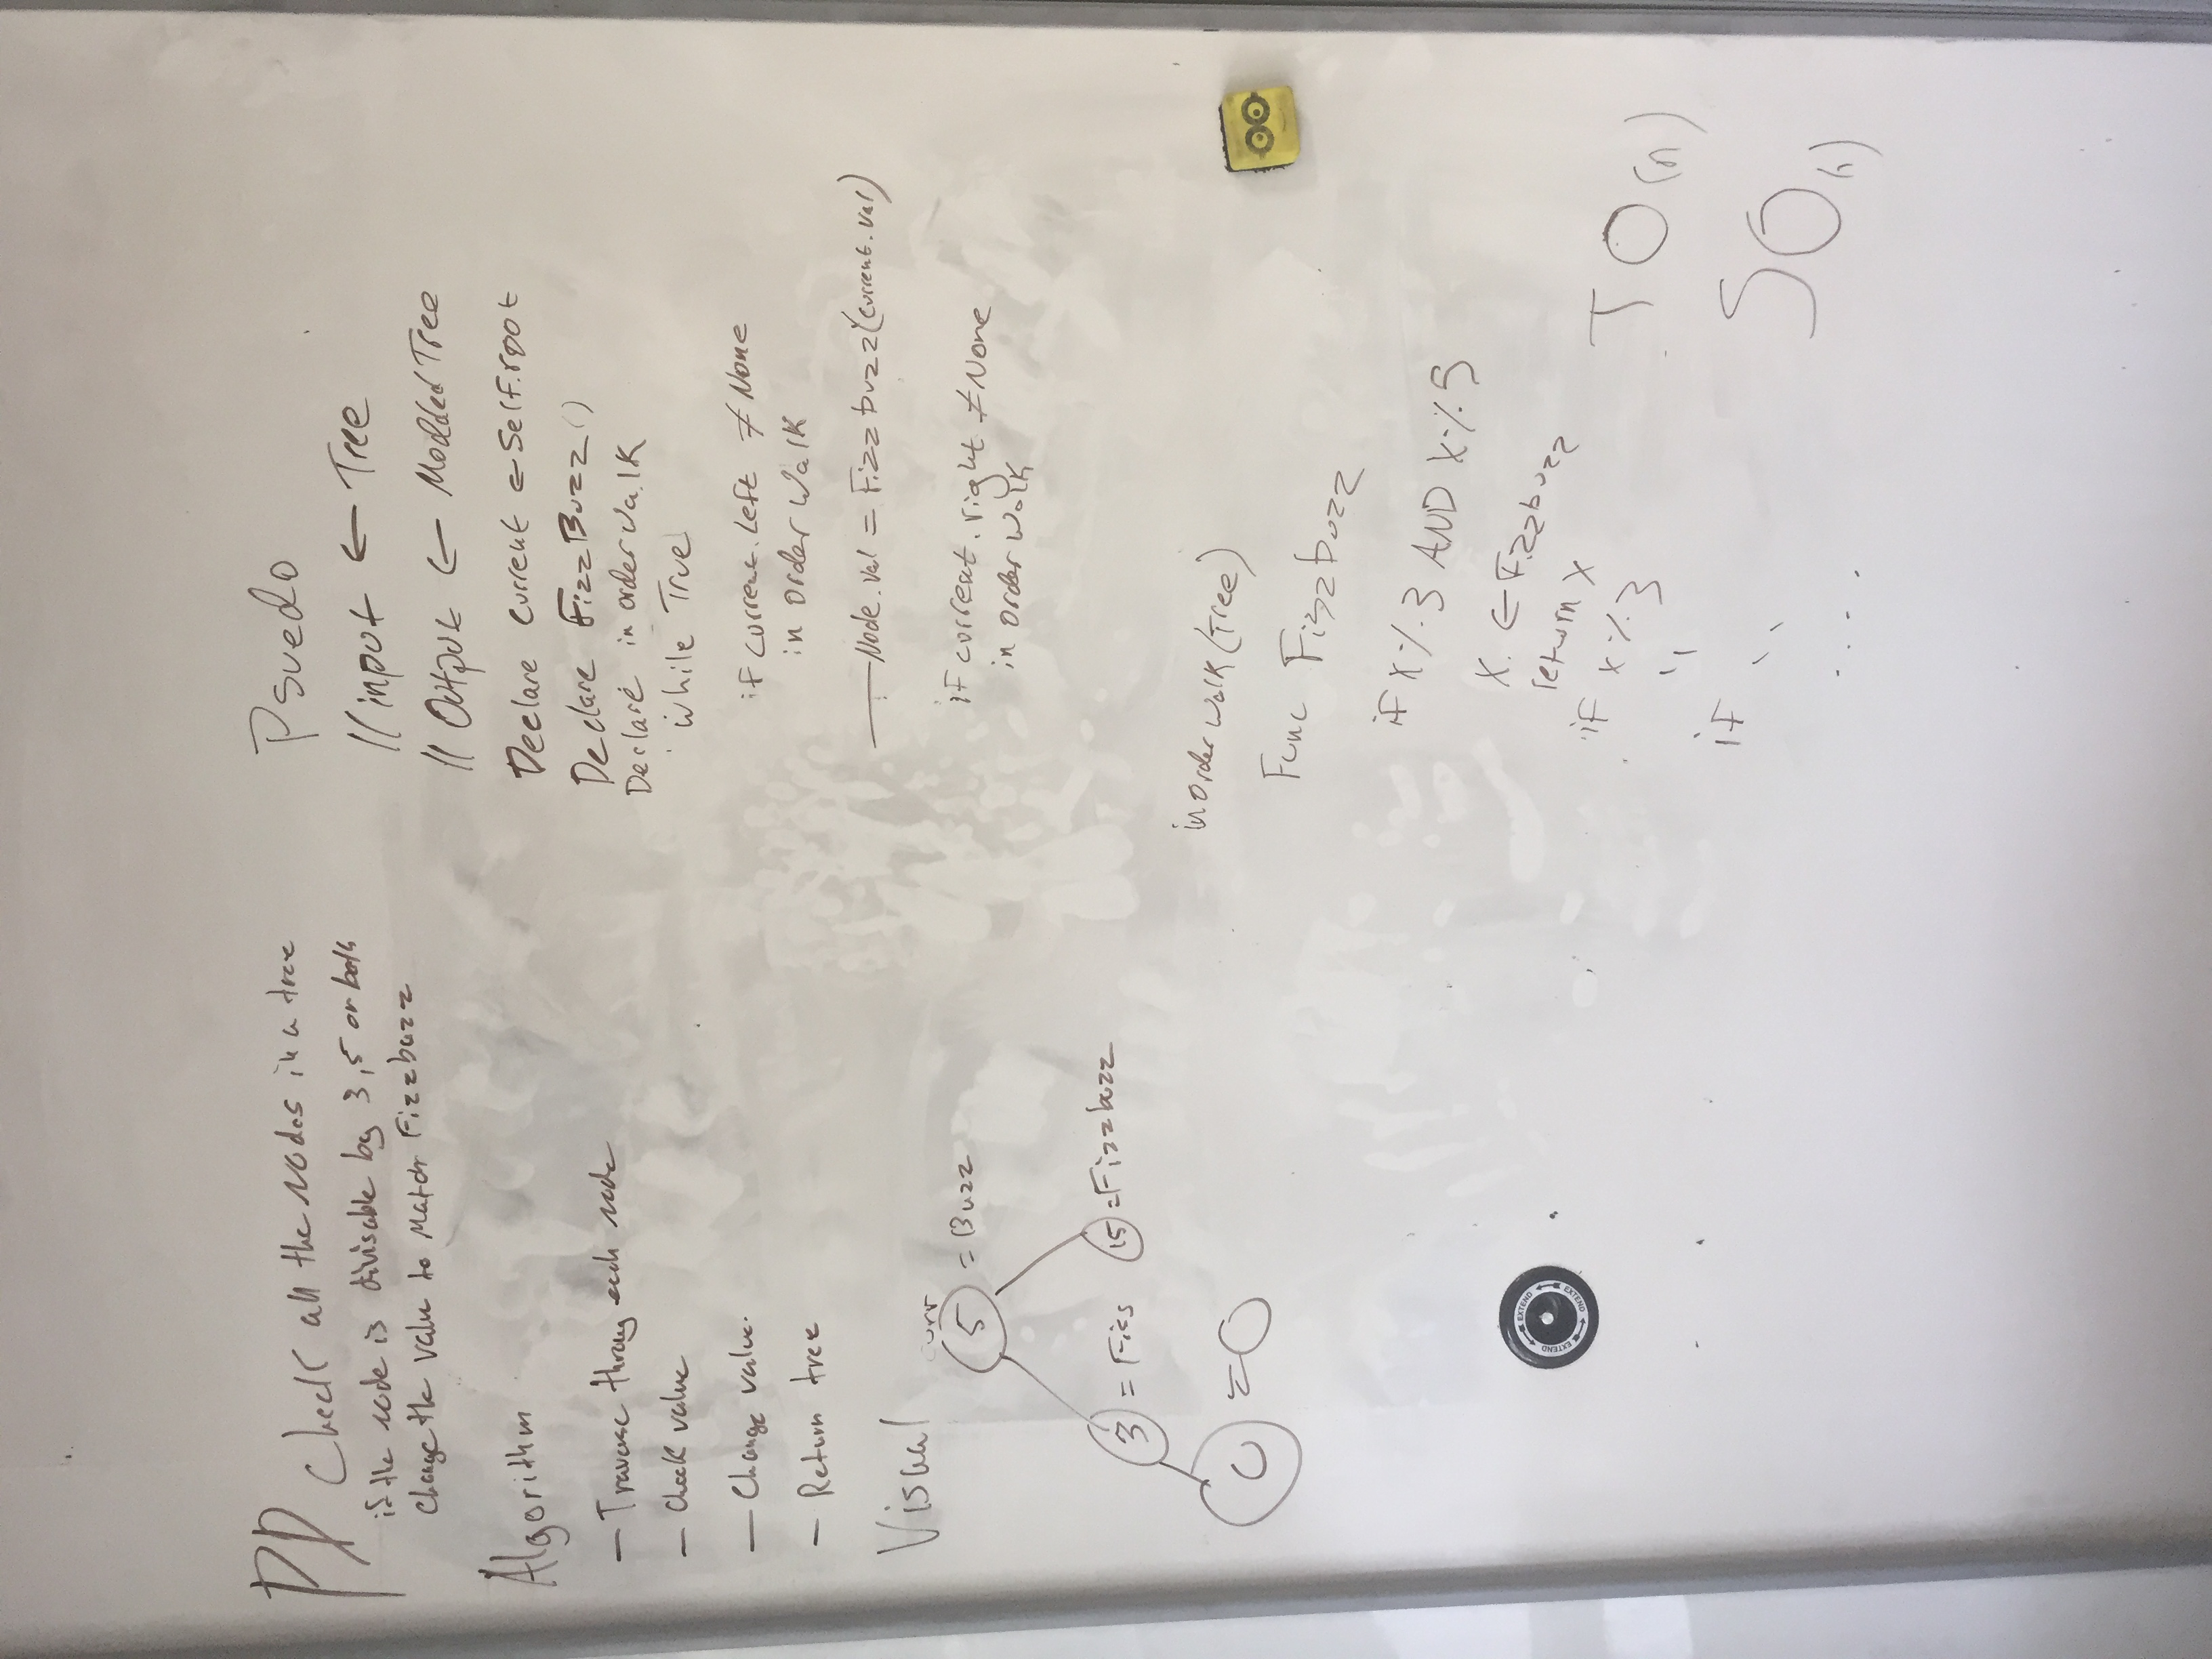 PD Check all the Nodes in a tree
if the node is divisable by 3,5 or both
change the value to Match Fizzbuzz
Algorithm
- Traverse throug each node
- Check value
- Change value.
- Return tree
Visual
curr
5 = Buzz
3 = Fizz
15 = Fizzbuzz
0 = 0
Psuedo
// input ← Tree
// Output ← Modded Tree
Declare current ← Self.root
Declare FizzBuzz()
Declare in order walk
while True
if current.left ≠ None
in order walk
Node.val = Fizzbuzz(current.val)
if current.right ≠ None
in order walk
in order walk (Tree)
Func Fizzbuzz
if x % 3 AND x % 5
X. ← Fizzbuzz
return X
if x % 3
''
if ''
....
T O(n)
S O(n)
EXTEND EXTEND EXTEND EXTEND